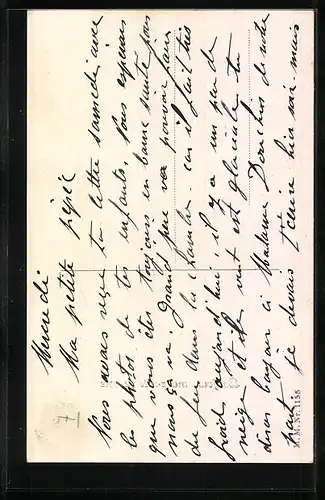 Mercredi
Ma petite pépée
Nous avons reçu ta lettre samedi avec
les photos de tes enfants. Nous espérons
que vous êtes toujours en bonne santé pour
nous ça va. Grand père va pouvoir faire
du feu dans la chambre car il fait très
froid aujourd'hui; il y a un peu de
neige et le vent est glaciale tu
diras bonjour à Madame Donchos de notre
part je devais t'écrire hier soir mais
M.M. Nr. 1155
7